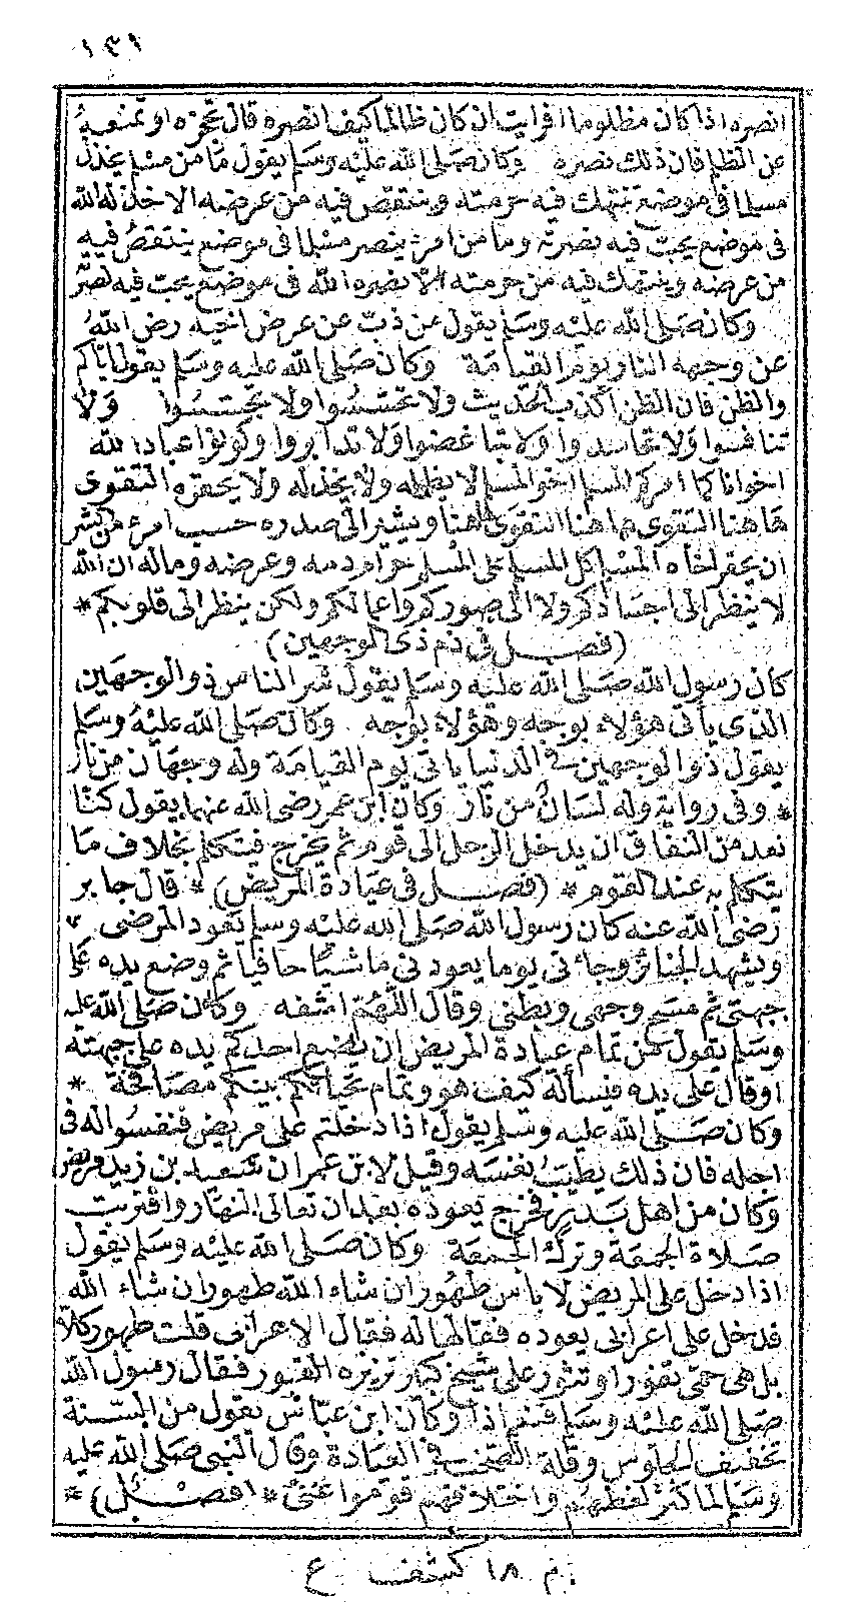 ١٣١
انصره اذا كان مظلوما افرايت ان كان ظالما كيف انصره قال تحجزه او تمنعه
عن الظلم فان ذلك نصره وكان صلى الله عليه وسلم يقول ما من مسلم يخذل
مسلما فى موضع تنتهك فيه حرمته وينتقص فيه من عرضه الا خذله الله
فى موضع يحبّ فيه نصرته وما من امرئ ينصر مسلما فى موضع ينتقص فيه
من عرضه وينتهك فيه من حرمته الا نصره الله فى موضع يحبّ فيه نصرته
وكان صلى الله عليه وسلم يقول من ذبّ عن عرض اخيه رد الله
عن وجهه النار يوم القيامة وكان صلى الله عليه وسلم يقول اياكم
والظن فان الظن اكذب الحديث ولا تحسّسوا ولا تجسّسوا ولا
تنافسوا ولا تحاسدوا ولا تباغضوا ولا تدابروا وكونوا عباد الله
اخوانا كما امركم المسلم اخو المسلم لا يظلمه ولا يخذله ولا يحقره التقوى
هاهنا التقوى هاهنا التقوى هاهنا ويشير الى صدره حسب امرئ من الشر
ان يحقر اخاه المسلم كل المسلم على المسلم حرام دمه وعرضه وماله ان الله
لا ينظر الى اجسادكم ولا الى صوركم واعمالكم ولكن ينظر الى قلوبكم *
(فصل فى ذم ذى الوجهين)
كان رسول الله صلى الله عليه وسلم يقول شر الناس ذو الوجهين
الذى ياتى هؤلاء بوجه وهؤلاء بوجه وكان صلى الله عليه وسلم
يقول ذو الوجهين فى الدنيا ياتى يوم القيامة وله وجهان من نار
* وفى رواية وله لسانٌ من نار وكان ابن عمر رضى الله عنهما يقول كنّا
نعد من النفاق ان يدخل الرجل الى قوم ثم يخرج فيتكلم بخلاف ما
يتكلم به عند القوم * (فصل فى عيادة المريض) * قال جابر
رضى الله عنه كان رسول الله صلى الله عليه وسلم يعود المرضى
ويشهد الجنائز وجاءنى يوما يعودنى ماشيًا حافيا ثم وضع يده على
جبهتى ثم مسح وجهى وبطنى وقال اللهم اشفه وكان صلى الله عليه
وسلم يقول من تمام عيادة المريض ان يضع احدكم يده على جبهته
او قال على يده فيسأله كيف هو وتمام تحياتكم بينكم مصافحة *
وكان صلى الله عليه وسلم يقول اذا دخلتم على مريض فنفسوا له فى
اجله فان ذلك يطيب نفسه وقيل لابن عمر ان سعيد بن زيد مريض
وكان من اهل بدر فخرج يعوده بعد ان تعالى النهار واقتربت
صلاة الجمعة وترك الجمعة وكان صلى الله عليه وسلم يقول
اذا دخل على المريض لا باس طهور ان شاء الله طهور ان شاء الله
فدخل على اعرابى يعوده فقالها له فقال الاعرابى قلت طهور كلّا
بل هى حمّى تفور او تثور على شيخ كبير تزيره القبور فقال رسول الله
صلى الله عليه وسلم فنعم اذا وكان ابن عباس يقول من السنة
تخفيف الجلوس وقلة الصخب فى العيادة وقال النبى صلى الله عليه
وسلم لما كثر لغطهم واختلافهم قوموا عنى * (فصل) *
م ١٨ كشف ع